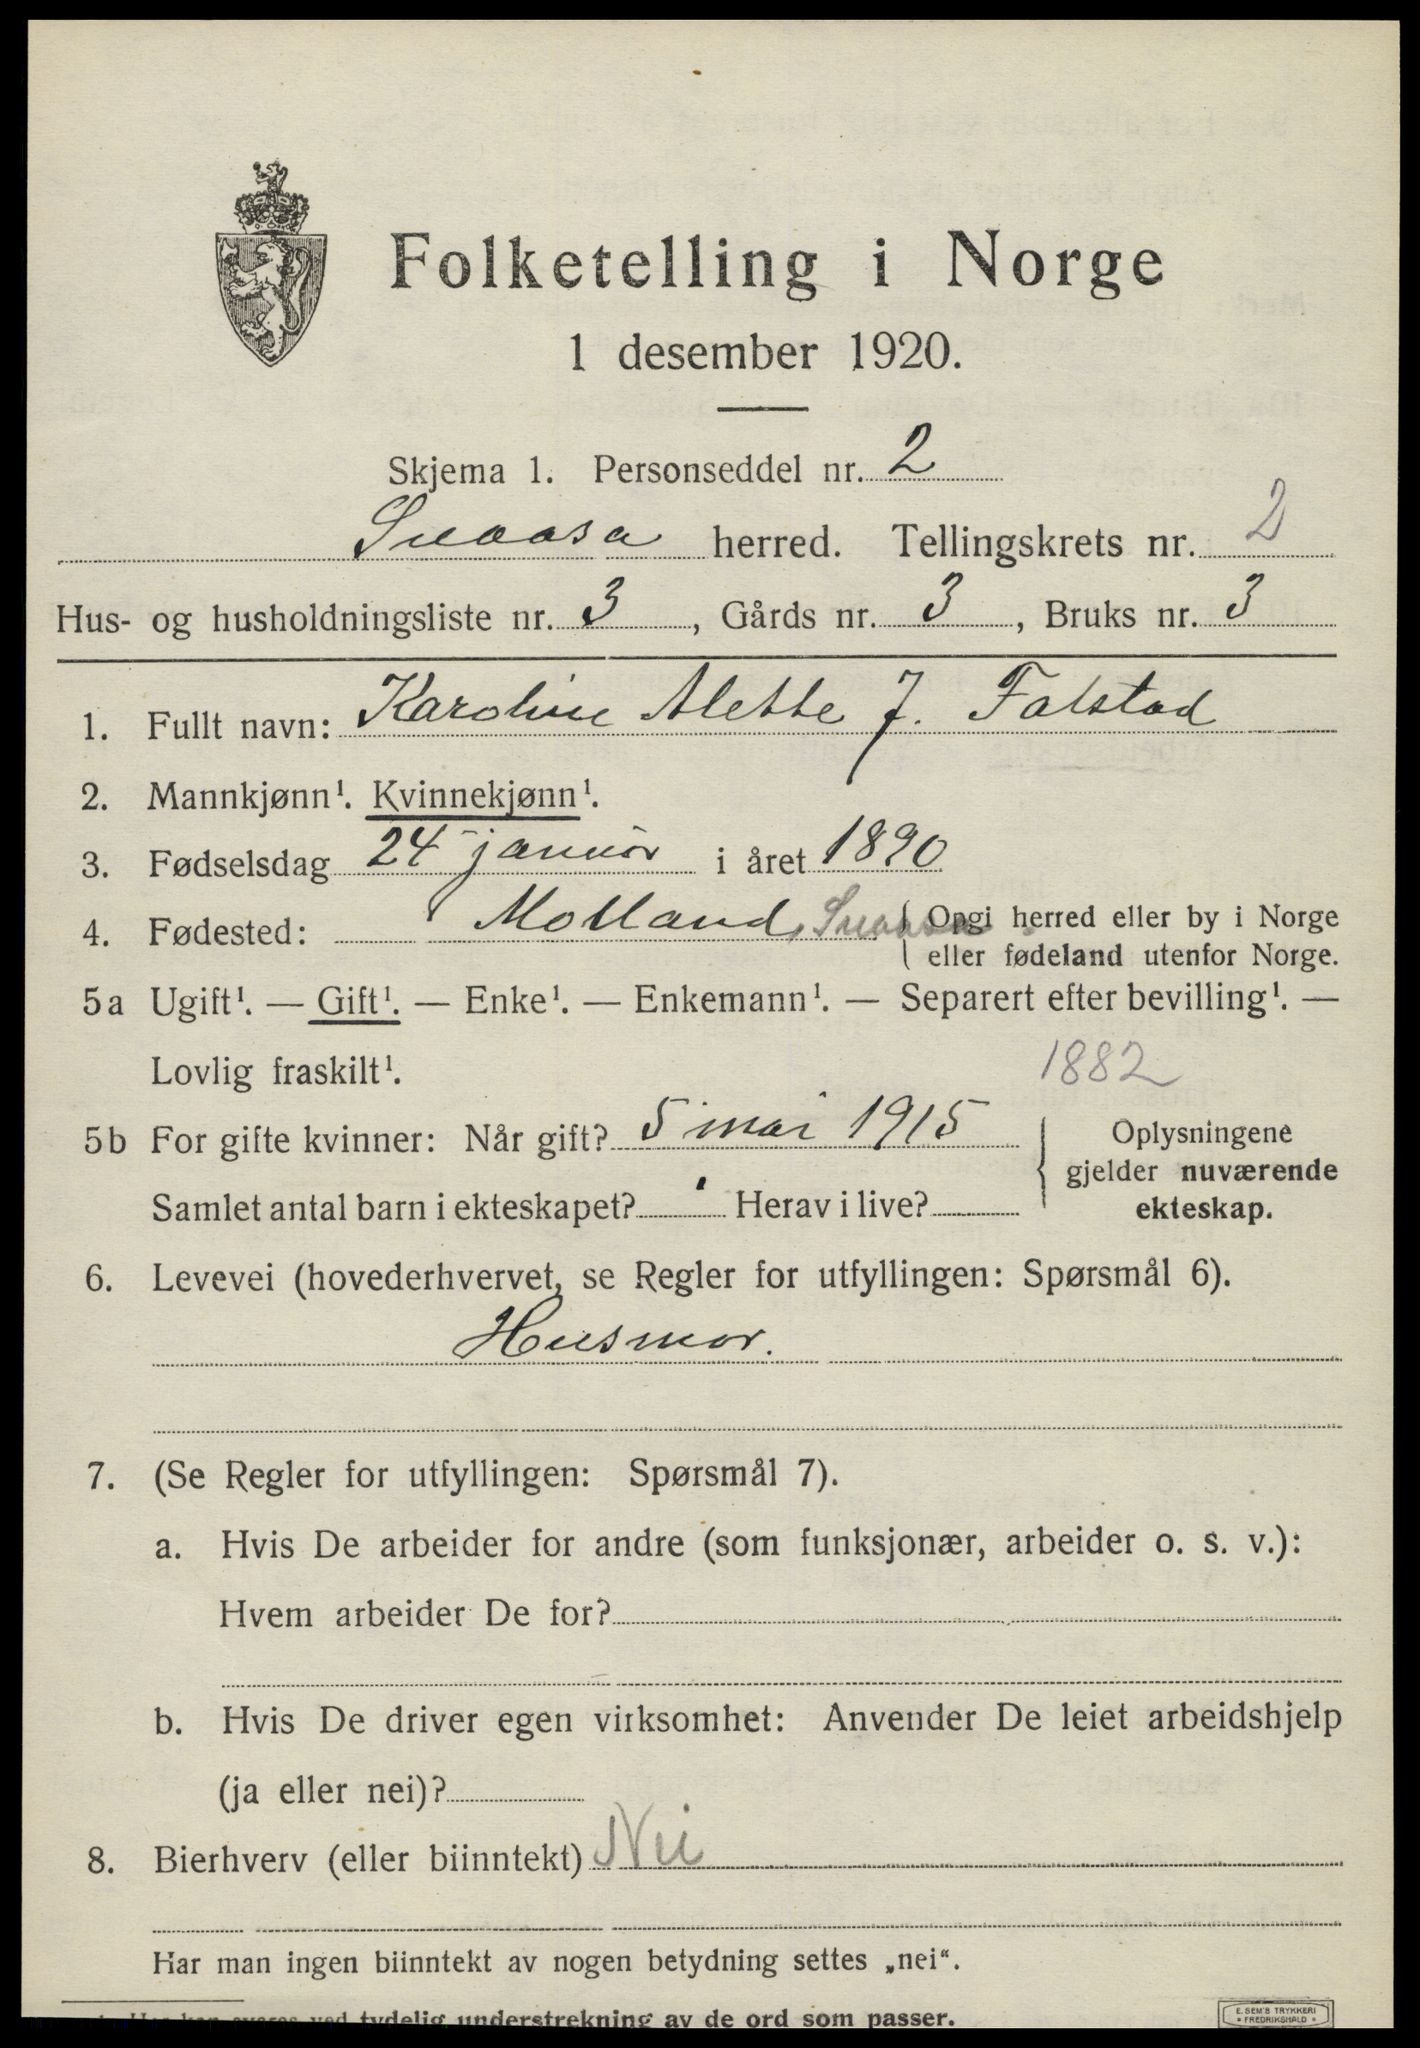 Folketelling i Norge
1 desember 1920.
Skjema 1. Personseddel nr. 2
Snaasa herred. Tellingskrets nr. 2
Hus- og husholdningsliste nr. 3, Gårds nr. 3, Bruks nr. 3
1. Fullt navn: Karoline Alette J. Falstad
2. Mannkjønn¹. Kvinnekjønn¹.
3. Fødselsdag 24 januar i året 1890
4. Fødested: Molland, Snaasa. { Opgi herred eller by i Norge
eller fødeland utenfor Norge.
5a Ugift¹. — Gift¹. — Enke¹. — Enkemann¹. — Separert efter bevilling¹. —
Lovlig fraskilt¹.
1882
5b For gifte kvinner: Når gift? 5 mai 1915
Samlet antal barn i ekteskapet? Herav i live?
Oplysningene
gjelder nuværende
ekteskap.
6. Levevei (hovederhvervet, se Regler for utfyllingen: Spørsmål 6).
Husmor.
7. (Se Regler for utfyllingen: Spørsmål 7).
a. Hvis De arbeider for andre (som funksjonær, arbeider o. s. v.):
Hvem arbeider De for?
b. Hvis De driver egen virksomhet: Anvender De leiet arbeidshjelp
(ja eller nei)?
8. Bierhverv (eller biinntekt) Nei
Har man ingen biinntekt av nogen betydning settes „nei“.
ved tydelig understrekning av de ord som passer.
E. SEM'S TRYKKERI
FREDRIKSHALD